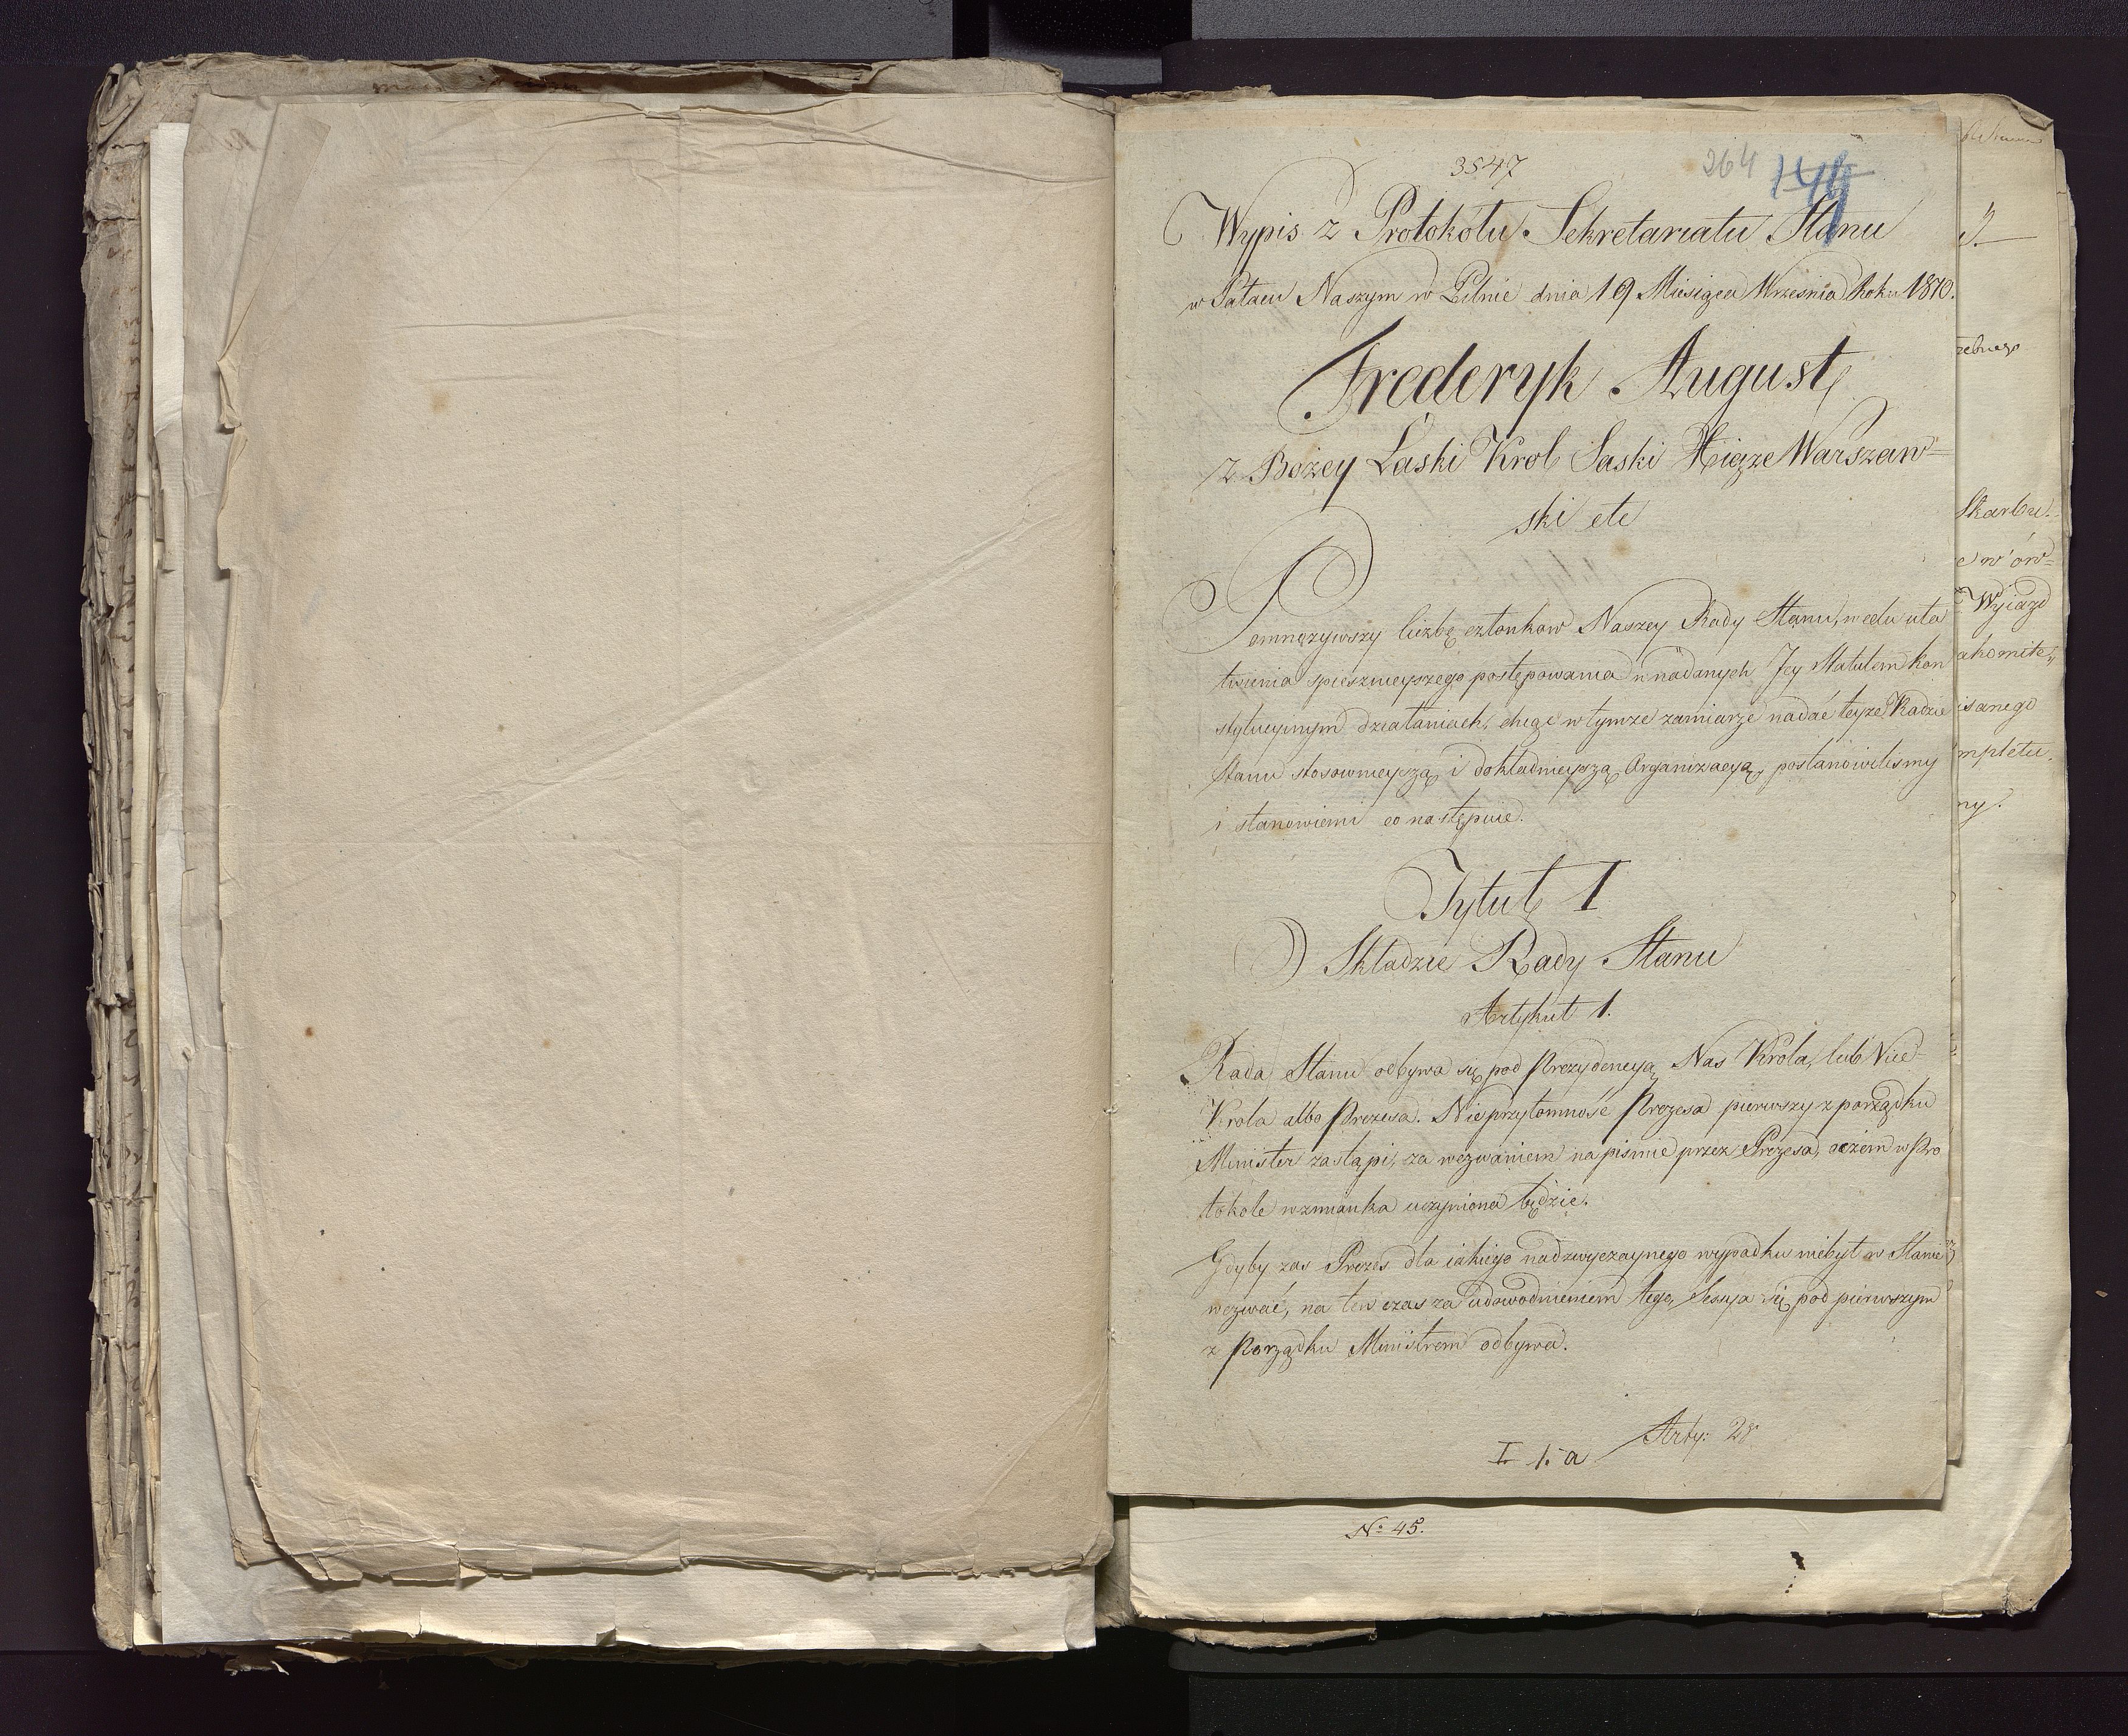 3547
264
144
Wypis z Protokołu Sekretariatu Stanu
w Pałacu Naszym w Pilnie dnia 19 Miesiąca Września Roku 1810.
Frederyk August
z Bożey Łaski Krol Saski Xiąże Warszaw=
ski etc
Pomnożywszy liczbę członkow Naszey Rady Stanu, w celu uła
twienia spiesznieyszego postępowania w nadanych Jey Statutem kon
stytucyinym działaniach, chcąc w tymże zamiarze nadać teyże Radzie
Stanu stosownieyszą i dokładnieyszą Organizacyą, postanowilismy
i stanowiemi co następuie.
Tytuł I
O Składzie Rady Stanu
Artykuł 1.
Rada Stanu odbywa się pod Prezydencyą Nas Krola, lub Vice=
Krola albo Prezesa. Nieprzytomność Prezesa pierwszy z porządku
Minister zastąpi, za wezwaniem na pismie przez Prezesa, o czem w Pro
tokole wzmianka uczyniona będzie.
Gdyby zas Prezes dla iakiego nadzwyczaynego wypadku niebył w Stanie
wezwać, na ten czas za udowodnieniem tego, Sessya się pod pierwszym
z Porządku Ministrem odbywa.
Arty: 2gi
I. 1. a
No 45.
Skarbu.
e w ów=
Wyiazd
akomite
isanego
mpletu.
ny.
rzebnego